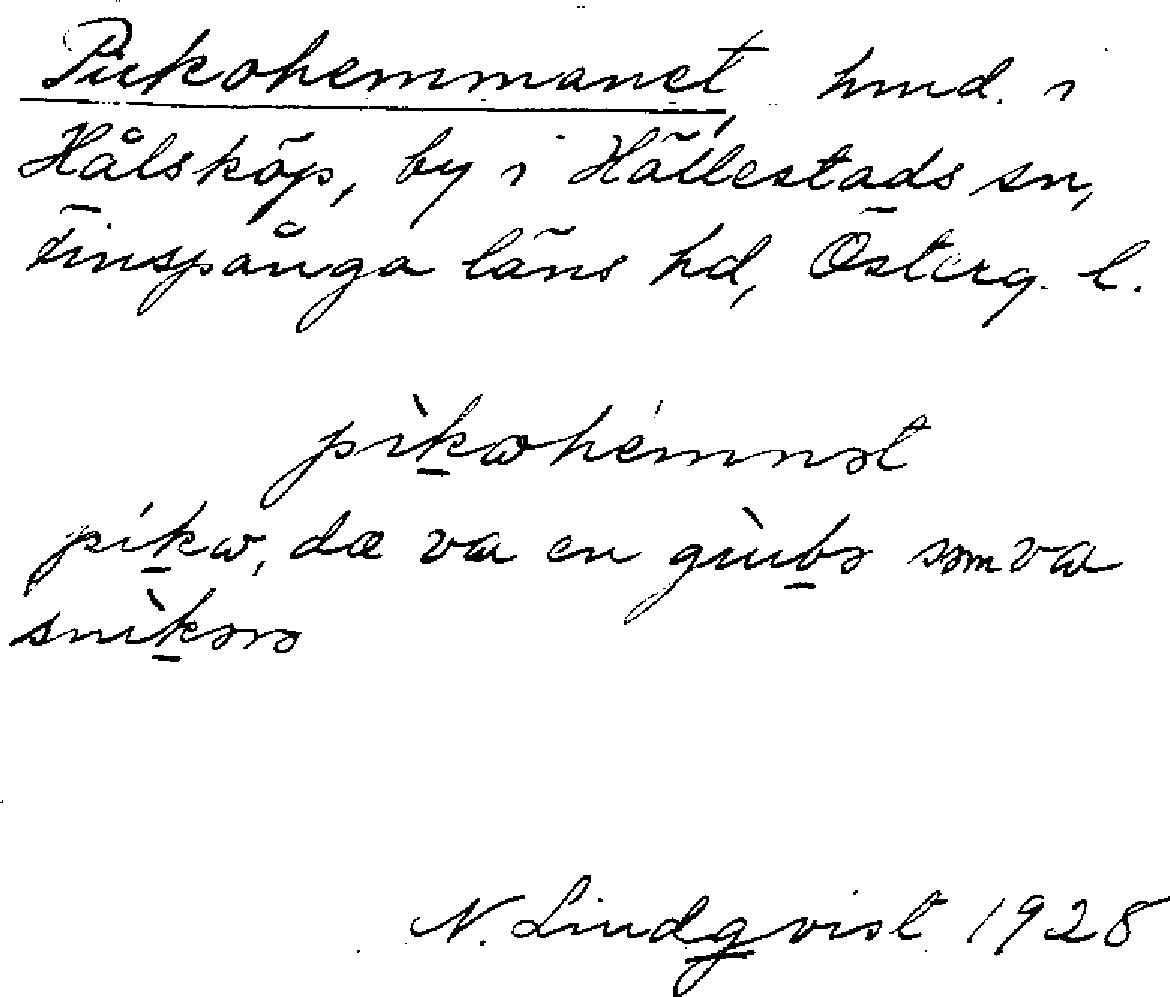 Pickohemmanet, hmd. i
Hålsköp, by i Hällestads sn,
Finspånga läns hd, Österg. l.
pìkωhémnət
píkω, dæ va en gùbə søm va
snìkərə
N. Lindqvist 1928